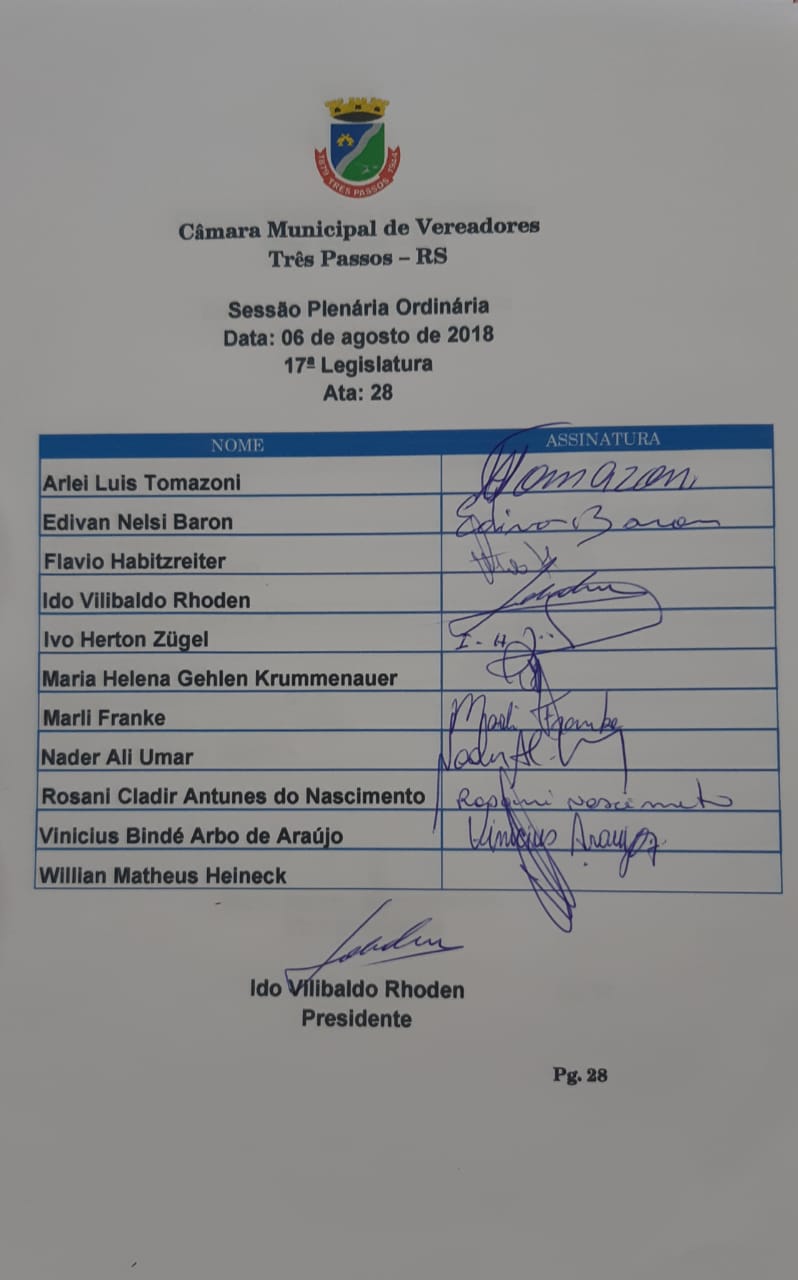 1879 TRES PASSOS 1944
Câmara Municipal de Vereadores
Três Passos – RS
Sessão Plenária Ordinária
Data: 06 de agosto de 2018
17ª Legislatura
Ata: 28
NOME ASSINATURA
Arlei Luis Tomazoni Tomazoni
Edivan Nelsi Baron Baron
Flavio Habitzreiter
Ido Vilibaldo Rhoden
Ivo Herton Zügel I - H
Maria Helena Gehlen Krummenauer
Marli Franke Marli Franke
Nader Ali Umar Nader
Rosani Cladir Antunes do Nascimento Rosani Nascimento
Vinicius Bindé Arbo de Araújo Vinicius Araujo
Willian Matheus Heineck
Ido Vilibaldo Rhoden
Presidente
Pg. 28